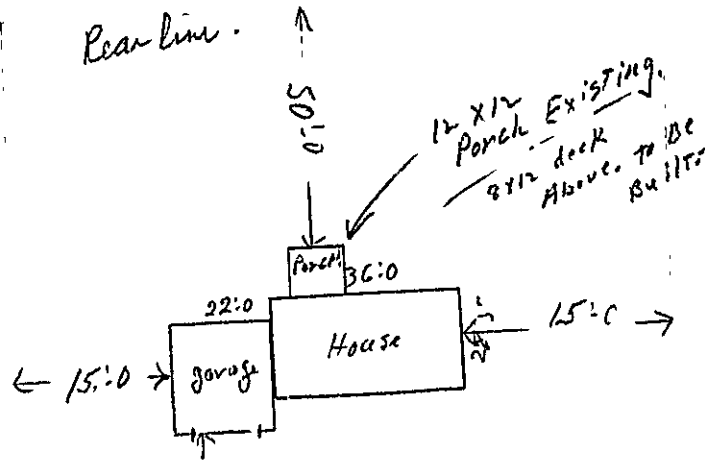 Rear line.
50'.0
12 x12
Porch Existing.
8x12 deck
Above. to Be
Built.
Porch
36'.0
22'.0
House
15'.0
garage
15'.0